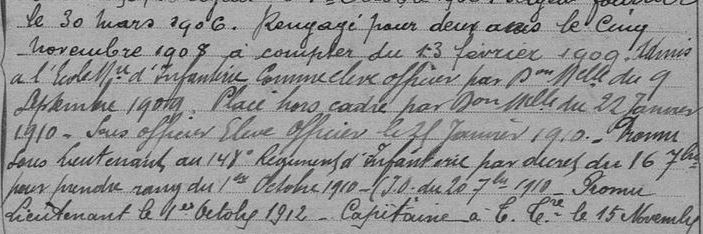 le 30 mars 1906. Rengagé pour deux ans le Cinq
novembre 1908 à compter du 13 février 1909. Admis
a l'Ecole Mre d'Infanterie Comme eleve officier par Don Melle du 9
Septembre 1909. Placé hors cadre par Don Melle du 22 Janvier
1910 - Sous officier Eleve Officier le 21 Janvier 1910. - Promu
sous Lieutenant au 148e Regiment d'Infanterie par decret du 16 7bre
pour prendre rang du 1er Octobre 1910 - (J.O. du 20 7bre 1910 - Promu
Lieutenant le 1er Octobre 1912 - Capitaine a T. Tre le 15 Novembre